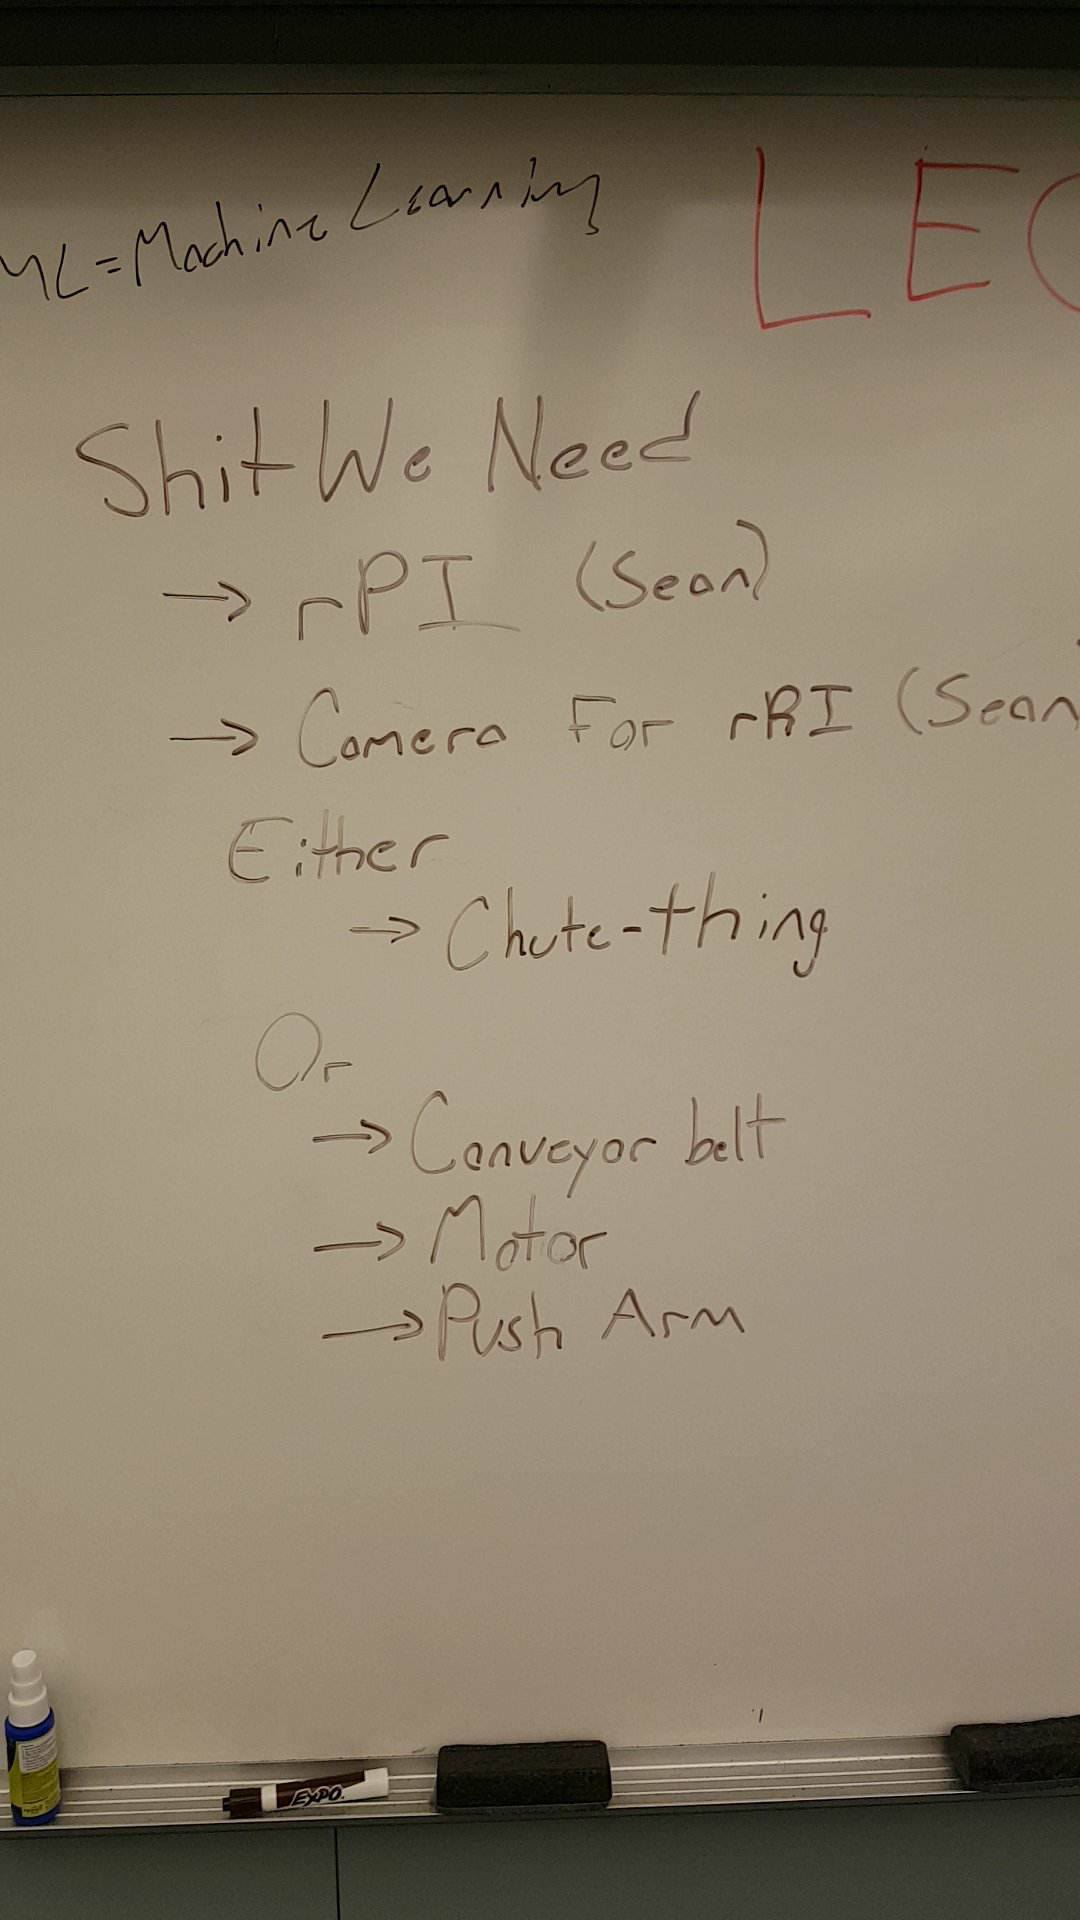 ML = Machine Learning
LEG
Shit We Need
→ rPI (Sean)
→ Camera For rPI (Sean)
Either
→ Chute-thing
Or
→ Conveyor belt
→ Motor
→ Push Arm
EXPO